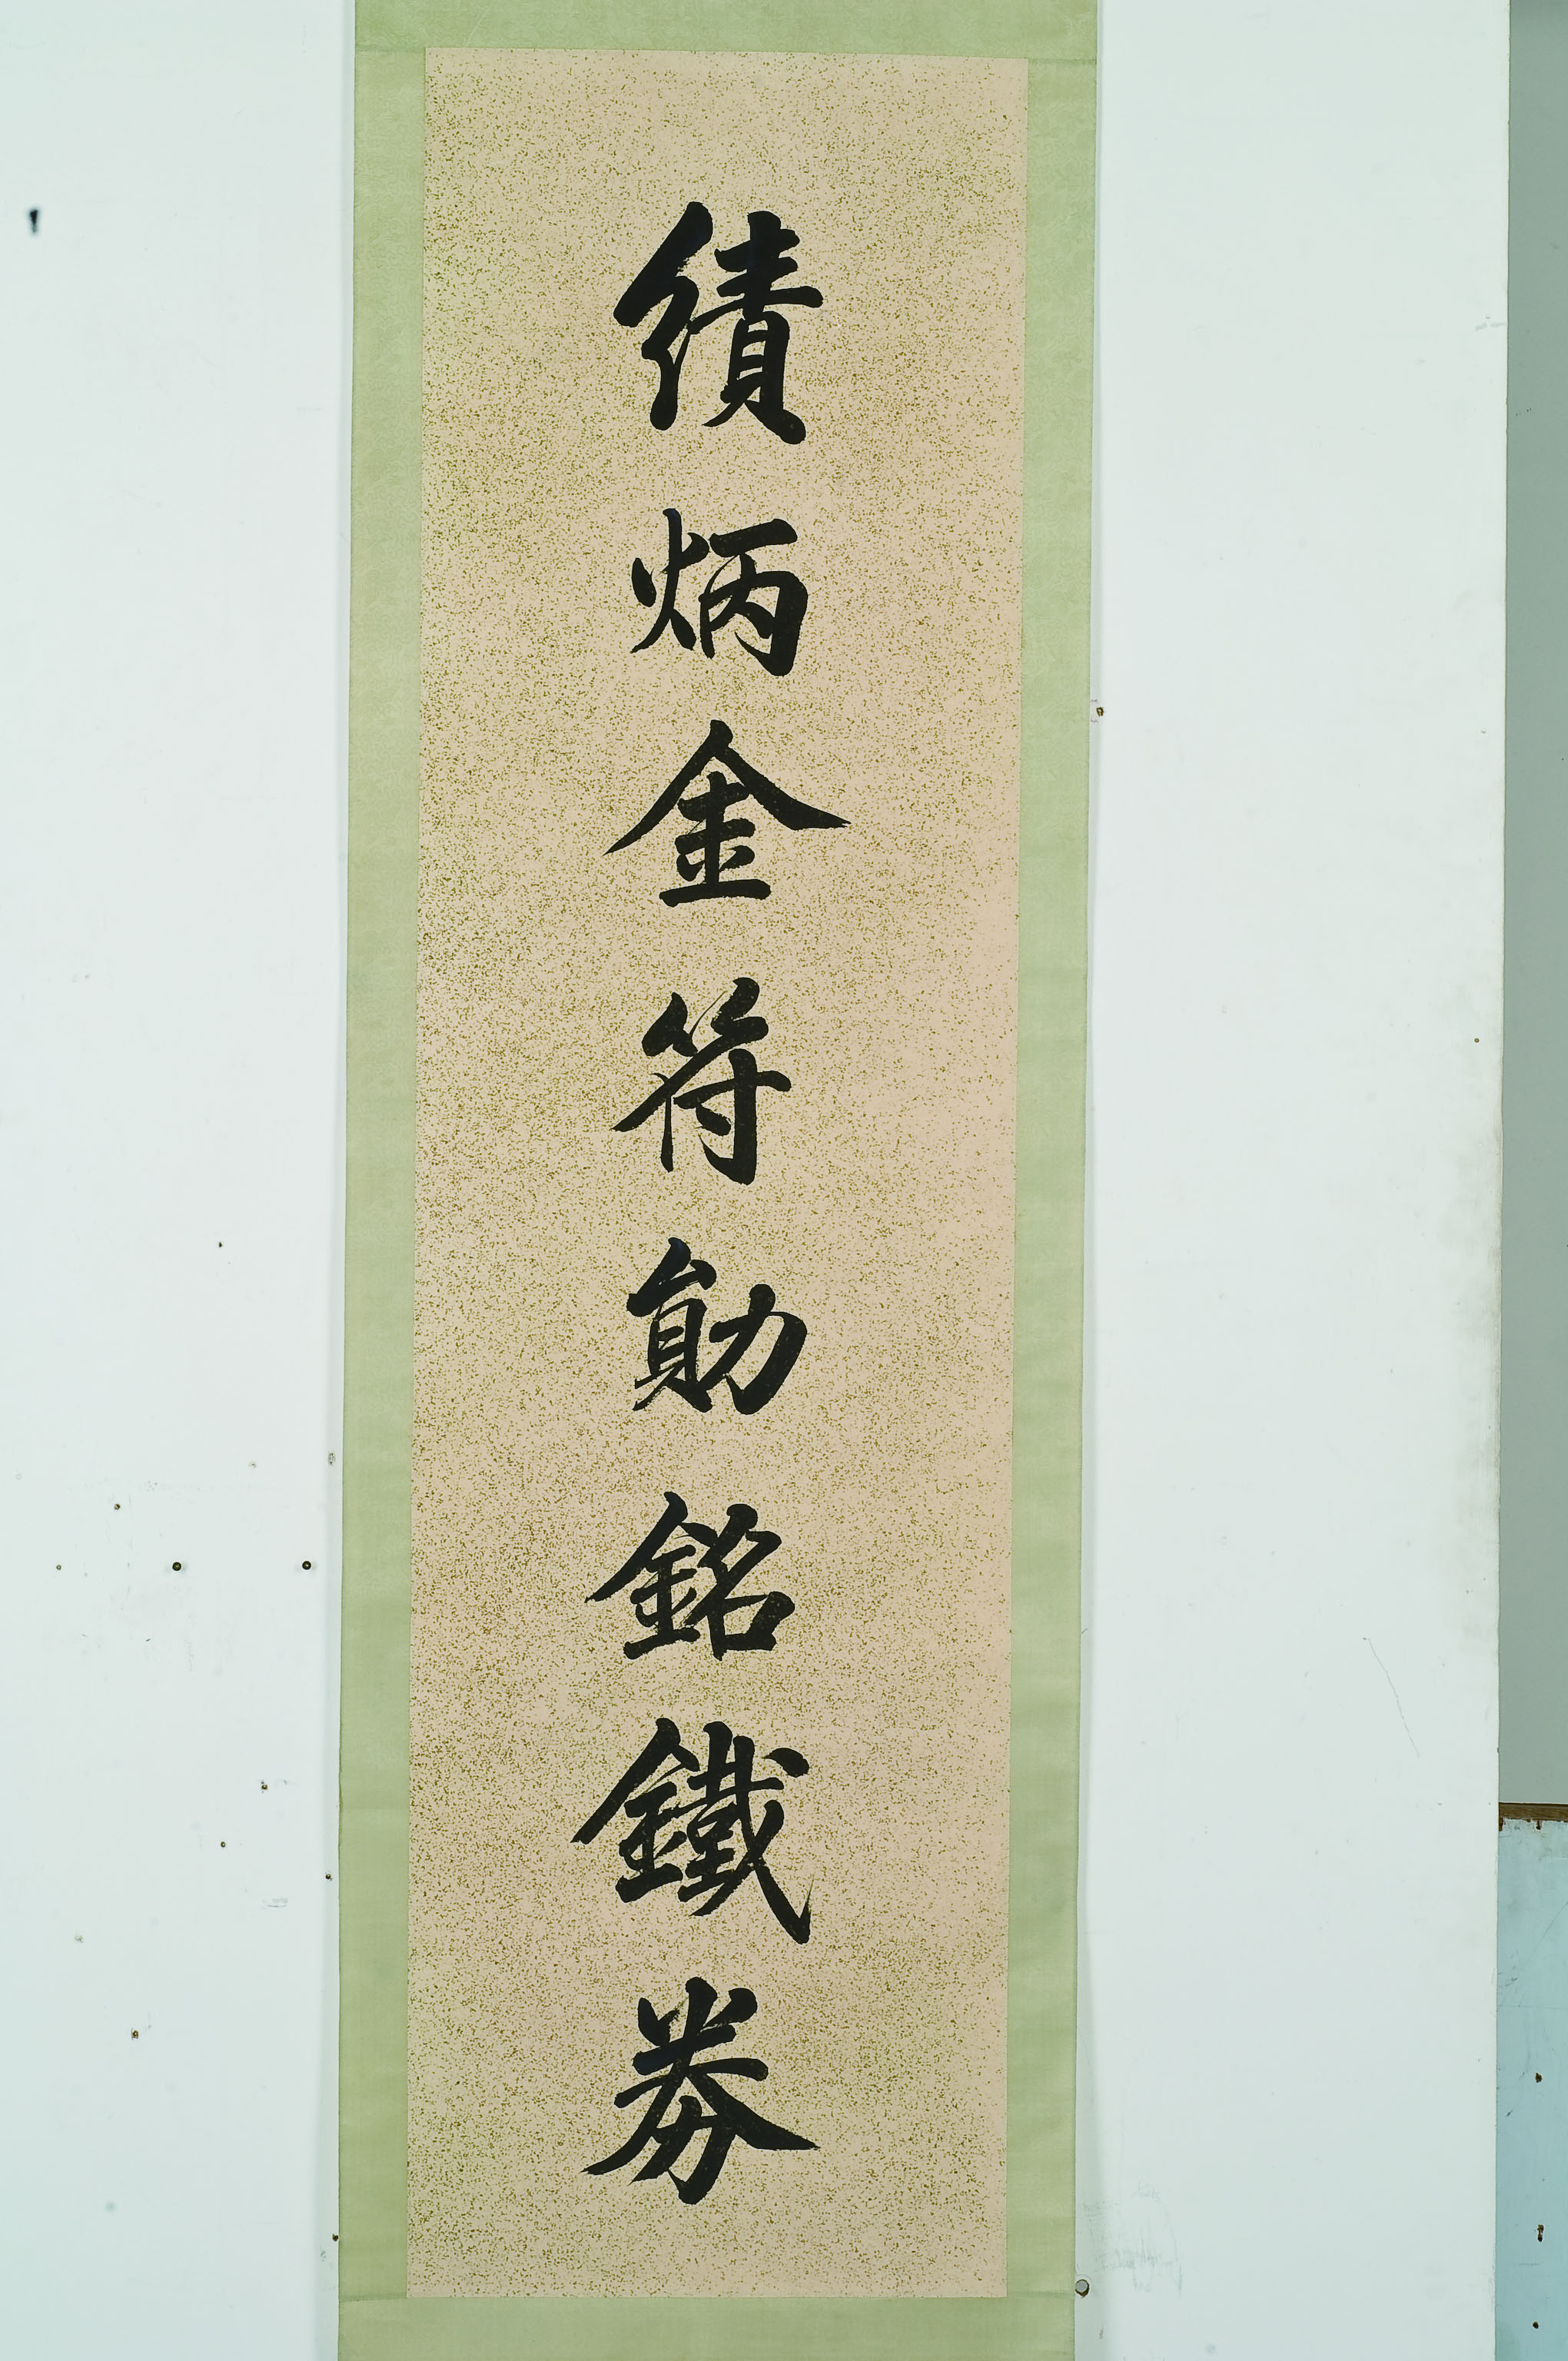 績炳金符勛銘鐵券